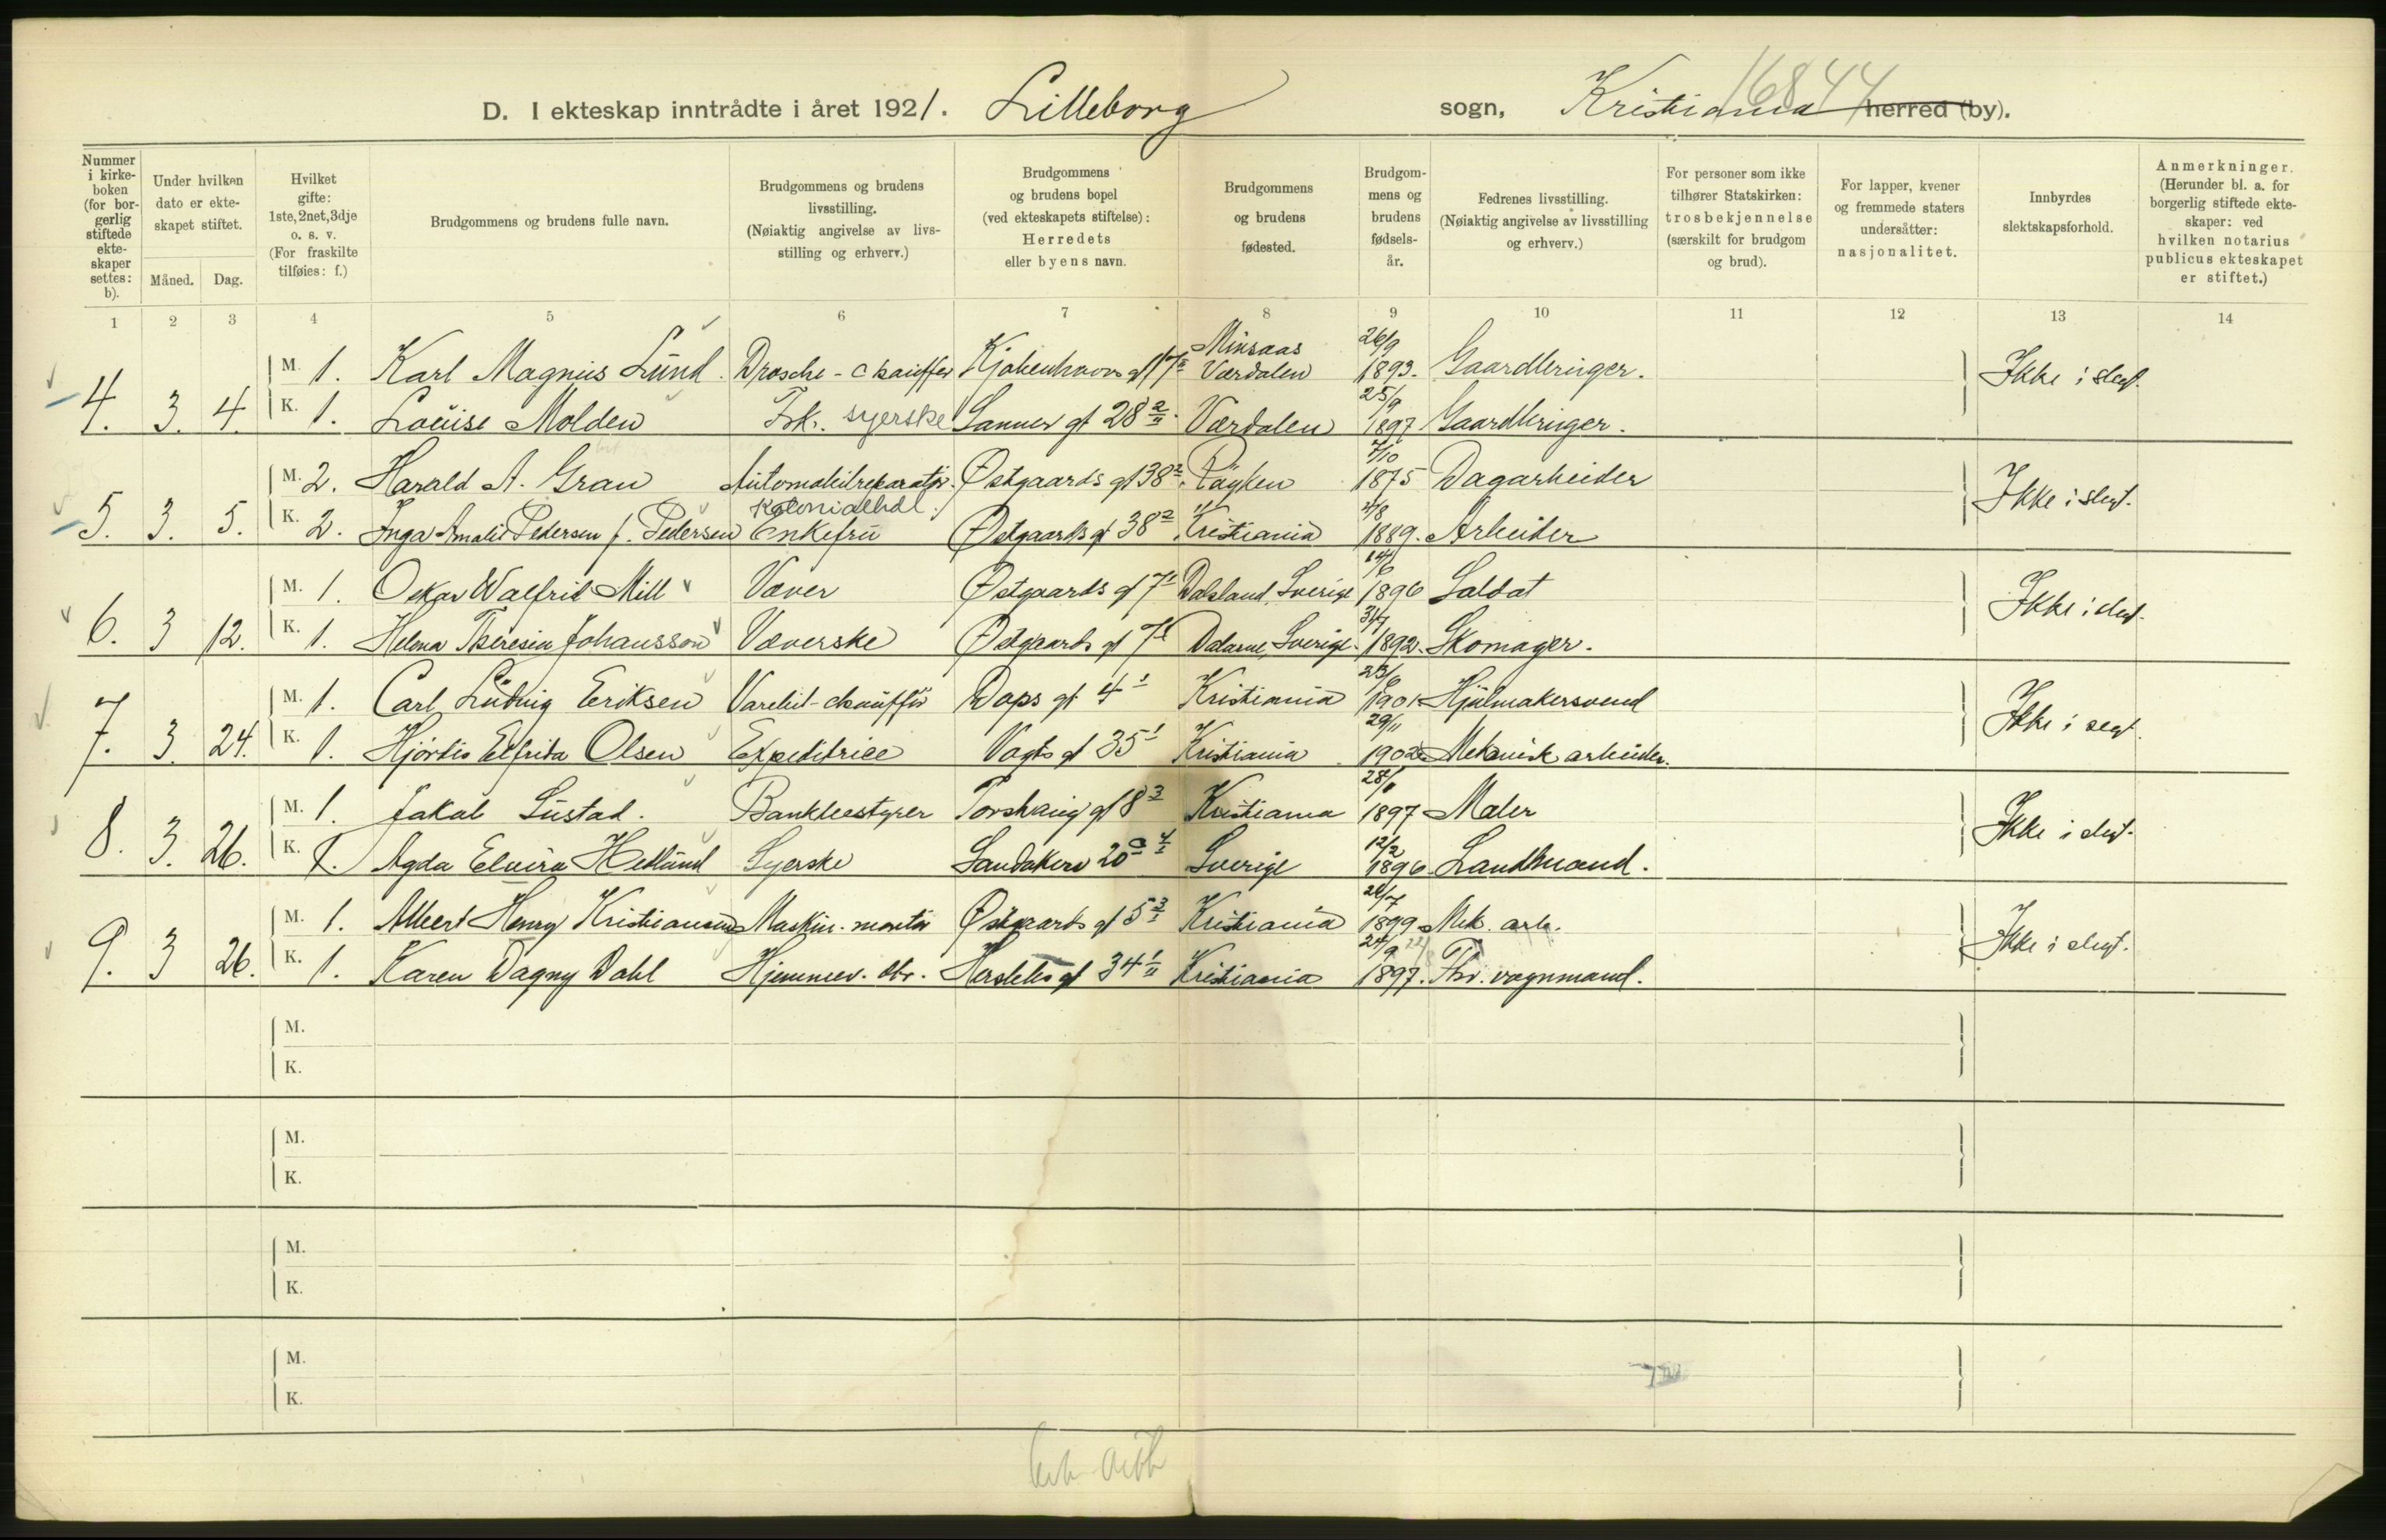 16844
D. I ekteskap inntrådte i året 1921. Lilleborg sogn, Kristiania herred (by).
Nummer i kirkeboken (for borgerlig stiftede ekteskaper settes: b).
Under hvilken dato er ekteskapet stiftet.
Måned. Dag.
Hvilket gifte: 1ste, 2net, 3dje o. s. v. (For fraskilte tilføies: f.)
Brudgommens og brudens fulle navn.
Brudgommens og brudens livsstilling. (Nøiaktig angivelse av livsstilling og erhverv.)
Brudgommens og brudens bopel (ved ekteskapets stiftelse): Herredets eller byens navn.
Brudgommens og brudens fødested.
Brudgommens og brudens fødselsår.
Fedrenes livsstilling. (Nøiaktig angivelse av livsstilling og erhverv.)
For personer som ikke tilhører Statskirken: trosbekjennelse (særskilt for brudgom og brud).
For lapper, kvener og fremmede staters undersåtter: nasjonalitet.
Innbyrdes slektskapsforhold.
Anmerkninger. (Herunder bl. a. for borgerlig stiftede ekteskaper: ved hvilken notarius publicus ekteskapet er stiftet.)
1 2 3 4 5 6 7 8 9 10 11 12 13 14
4. 3. 4. M. 1. Karl Magnus Lund. Drosche-chauffer Kjøbenhavns gt 17 II Minsaas Værdalen 26/9 1893. Gaardbruger. Ikke i slegt.
K. 1. Louise Molden Frk. syerske Sanner gt 28 2/II. Værdalen 25/9 1897 Gaardbruger.
5. 3. 5. M. 2. Harald A. Gran Automobilreparatør. Østgaards gt 38 2. Røyken 7/10 1875 Dagarbeider Ikke i slegt.
K. 2. Inga Amalie Pedersen f. Pedersen Kolonialhdl. Enkefru Østgaards gt 38 2/II Kristiania 1889. Arbeider
6. 3 12. M. 1. Oskar Walfrid Mill Væver Østgaards gt 7 1 Dalsland, Sverige 14/6 1896 Soldat Ikke i slegt.
K. 1. Helena Theresia Johansson Væverske Østgaards gt 7 1 Dalarne, Sverige. 31/1 1892. Skomager.
7. 3. 24. M. 1. Carl Ludvig Eriksen Varebil-chauffør Dops gt 4 1 Kristiania 1901 Hjulmakersvend Ikke i slegt.
K. 1. Hjørdis Elfrida Olsen Expeditrice Vogts gt 35 1 Kristiania 29/11 1902 Mekanisk arbeider.
8. 3. 26. M. 1. Jakob Sustad. Bankbestyrer Torshaug gt 8 3 Kristiania 1897 Maler Ikke i slegt.
K. 1. Agda Elvira Hedlund Syerske Sandakerv 20 Sverige 12/2 1896 Landmand.
9. 3 26. M. 1. Albert Henry Kristiansen Maskin. montør Østgaards gt 5 3/I Kristiania 1899 Mek. arb. Ikke i slegt.
K. 1. Karen Dagny Dahl Hjemmev. dtr. Herslebs gt 34 1/II Kristiania 24/9 1897. Fhv. vognmand.
M.
K.
M.
K.
M.
K.
M.
K.